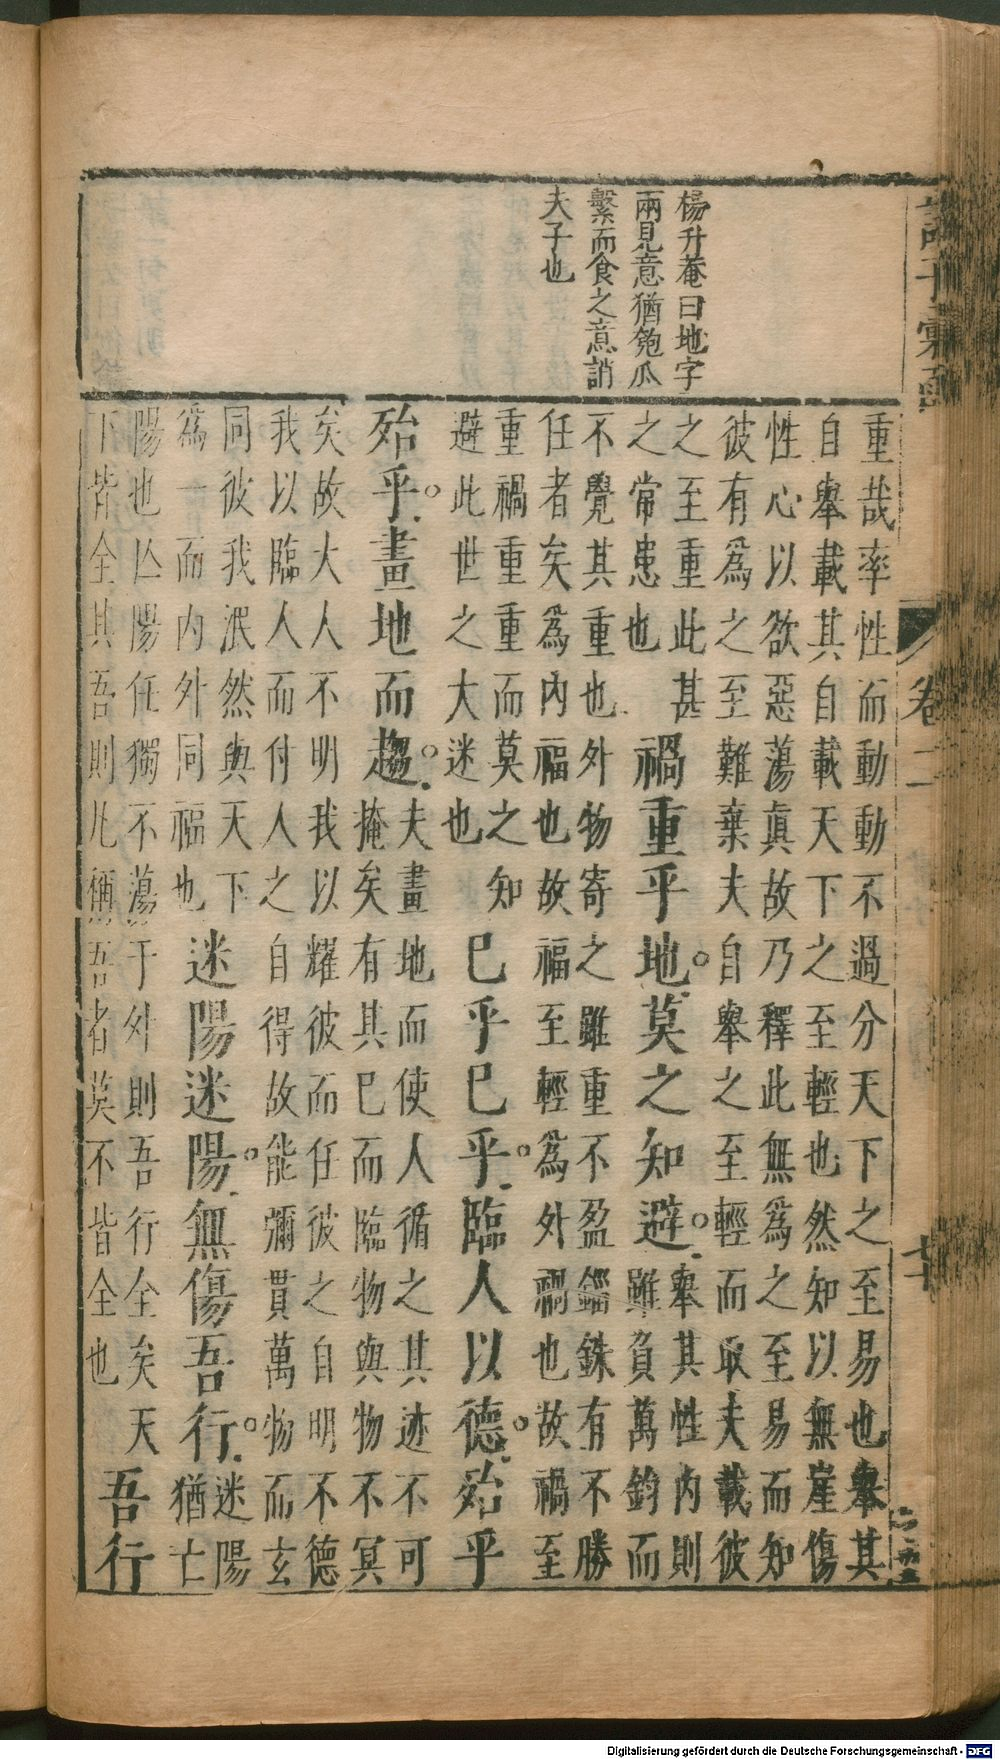 楊升菴曰地字
兩見意猶匏瓜
繫而食之意誚
夫子也
諸子彙函
卷二
七十
重哉率性而動動不過分天下之至易也舉其
自舉載其自載天下之至輕也然知以無崖傷
性心以欲惡蕩真故乃釋此無為之至易而知
彼有為之至難棄夫自舉之至輕而取夫載彼
之至重此甚
之常患也
禍重乎地莫之知避
舉其性內則
雖負萬鈞而
不覺其重也外物寄之雖重不盈錙銖有不勝
任者矣為內福也故福至輕為外禍也故禍至
重禍重重而莫之知
避此世之大迷也
已乎已乎臨人以德殆乎
殆乎畫地而趨
夫畫地而使人循之其迹不可
掩矣有其已而臨物與物不冥
矣故大人不明我以耀彼而任彼之自明不德
我以臨人而付人之自得故能彌貫萬物而玄
同彼我泯然與天下
為一而內外同福也
迷陽迷陽無傷吾行
迷陽
猶亡
陽也亾陽任獨不蕩于外則吾行全矣天
下皆全其吾則凡稱吾者莫不皆全也
吾行
Digitalisierung gefördert durch die Deutsche Forschungsgemeinschaft - DFG